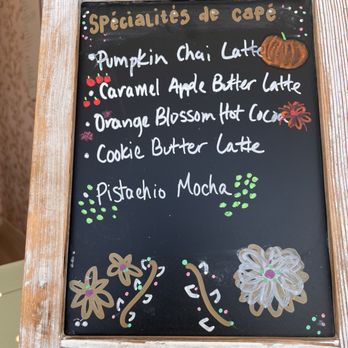 Spécialités de café
• Pumpkin Chai Latte
• Caramel Apple Butter Latte
• Orange Blossom Hot Cocoa
• Cookie Butter Latte
Pistachio Mocha